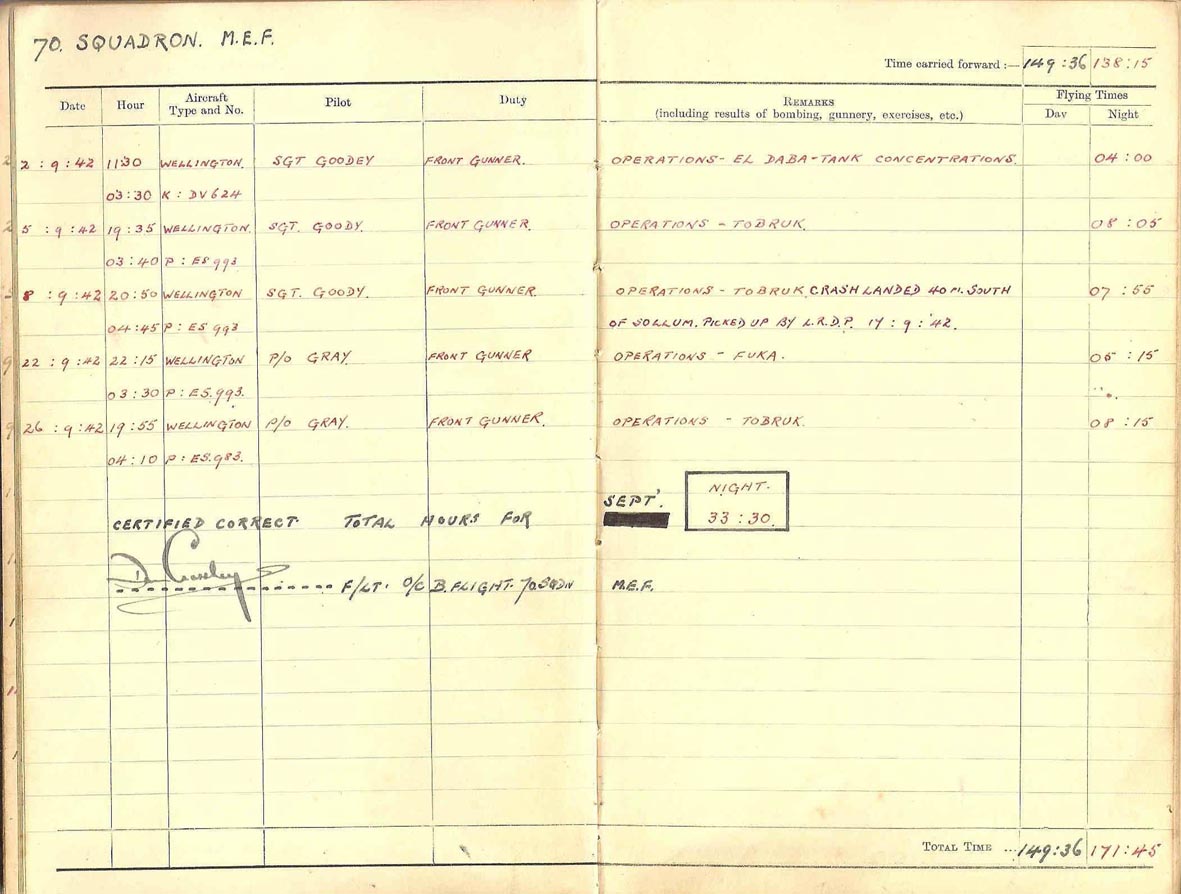 70. SQUADRON. M.E.F.
Time carried forward :— 149:36 138:15
Date Hour Aircraft Type and No. Pilot Duty REMARKS (including results of bombing, gunnery, exercises, etc.) Flying Times Day Night
2:9:42 11:30 WELLINGTON. SGT GOODEY FRONT GUNNER. OPERATIONS - EL DABA - TANK CONCENTRATIONS. 04:00
03:30 K: DV624
5:9:42 19:35 WELLINGTON. SGT. GOODY. FRONT GUNNER. OPERATIONS - TOBRUK. 08:05
03:40 P: ES993
8:9:42 20:50 WELLINGTON SGT. GOODY. FRONT GUNNER. OPERATIONS - TOBRUK. CRASH LANDED 40 M. SOUTH 07:55
04:45 P: ES 993 OF SOLLUM. PICKED UP BY L.R.D.P. 17:9:'42.
22:9:42 22:15 WELLINGTON P/O GRAY. FRONT GUNNER OPERATIONS - FUKA. 05:15
03:30 P: ES.993.
26:9:42 19:55 WELLINGTON P/O GRAY. FRONT GUNNER. OPERATIONS - TOBRUK. 08:15
04:10 P: ES.983.
NIGHT.
CERTIFIED CORRECT. TOTAL HOURS FOR SEPT'. 33:30.
F/LT. O/C B. FLIGHT. 70 SQDN M.E.F.
TOTAL TIME ... 149:36 171:45